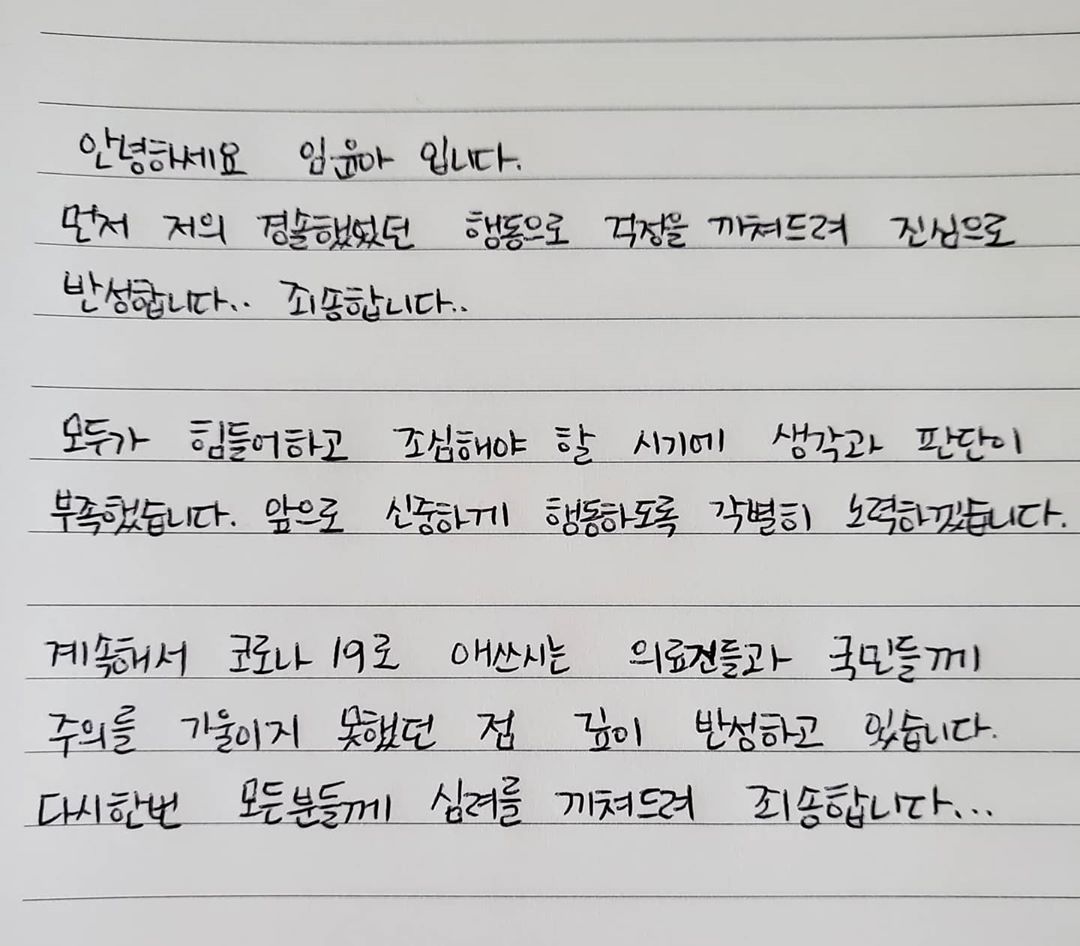 안녕하세요 임윤아 입니다.
먼저 저의 경솔했었던 행동으로 걱정을 끼쳐드려 진심으로
반성합니다.. 죄송합니다..
모두가 힘들어하고 조심해야 할 시기에 생각과 판단이
부족했습니다. 앞으로 신중하게 행동하도록 각별히 노력하겠습니다.
계속해서 코로나 19로 애쓰시는 의료진들과 국민들께
주의를 기울이지 못했던 점 깊이 반성하고 있습니다.
다시한번 모든분들께 심려를 끼쳐드려 죄송합니다...